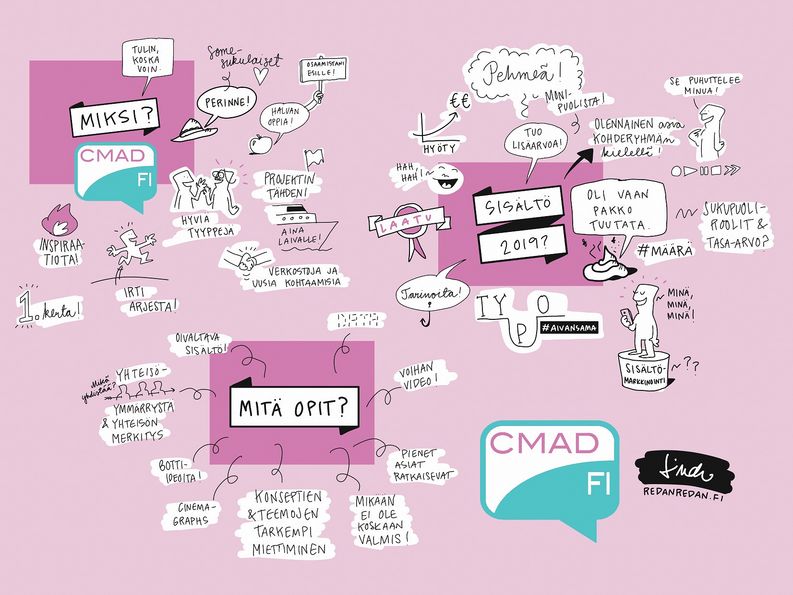 TULIN,
KOSKA
VOIN.
Some-
sukulaiset
OSAAMISTANI
ESILLE!
MIKSI?
PERINNE!
HALVAN
OPPIA!
CMAD
FI
INSPIRAA-
TIOTA!
HYVIÄ
TYYPPEJÄ
PROJEKTIN
TÄHDEN!
AINA
LAIVALLE!
VERKOSTOJA JA
UUSIA KOHTAAMISIA
1. kerta!
IRTI
ARJESTA!
Pehmeä!
€€
HYÖTY
MONI-
PUOLISTA!
TUO
LISÄARVOA!
OLENNAINEN asia
KOHDERYHMÄN
kielellä!
SE PUHUTTELEE
MINUA!
HAH,
HAH!
LAATU
SISÄLTÖ
2019?
OLI VAAN
PAKKO
TUUTATA.
#MÄÄRÄ
SUKUPUOLI-
ROOLIT &
TASA-ARVO?
Tarinoita!
TYPO
#AIVANSAMA
MINÄ,
MINÄ,
MINÄ!
SISÄLTÖ-
MARKKINOINTI
??
OIVALTAVA
SISÄLTÖ!
Mikä
yhdistää?
YHTEISÖ-
YMMÄRRYSTÄ
& YHTEISÖN
MERKITYS
MITÄ OPIT?
VOIHAN
VIDEO!
BOTTI-
IDEOITA!
CINEMA-
GRAPHS
KONSEPTIEN
& TEEMOJEN
TARKEMPI
MIETTIMINEN
MIKÄÄN
EI OLE
KOSKAAN
VALMIS!
PIENET
ASIAT
RATKAISEVAT
CMAD
FI
REDANREDAN.FI